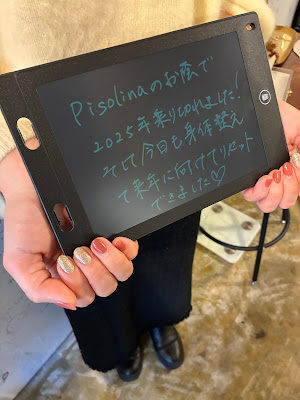 Pisolinaのお蔭で
2025年乗り切れました!
そして今日も身体整え
て来年に向けてリセット
できました♡